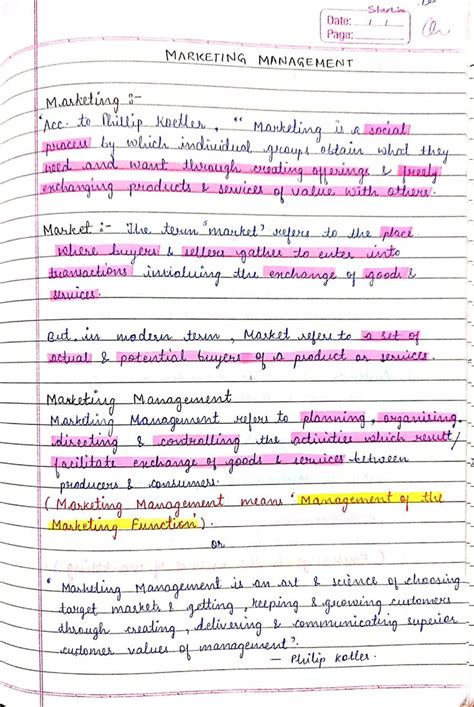 Starlin
Date: / /
Page:
MARKETING MANAGEMENT
Marketing :-
"Acc. to Phillip Kotler, " Marketing is a social
process by which individual groups obtain what they
need and want through creating offerings & freely
exchanging products & services of value with others.
Market :- The term "market' refers to the place
where buyers & sellers gather to enter into
transactions invioluing the exchange of goods &
services.
But in modern term, Market refers to a set of
actual & potential buyers of a product or services.
Marketing Management
Marketing Management refers to planning, organising,
directing & controlling the activities which result/
facilitate exchange of goods & services between
producers & consumers.
( Marketing Management means 'Management of the
Marketing Function').
or
" Marketing Management is an art & science of choosing
target markets & getting, keeping & growing customers
through creating, delivering & communicating superior
customer values of management".
— Philip Kotler.